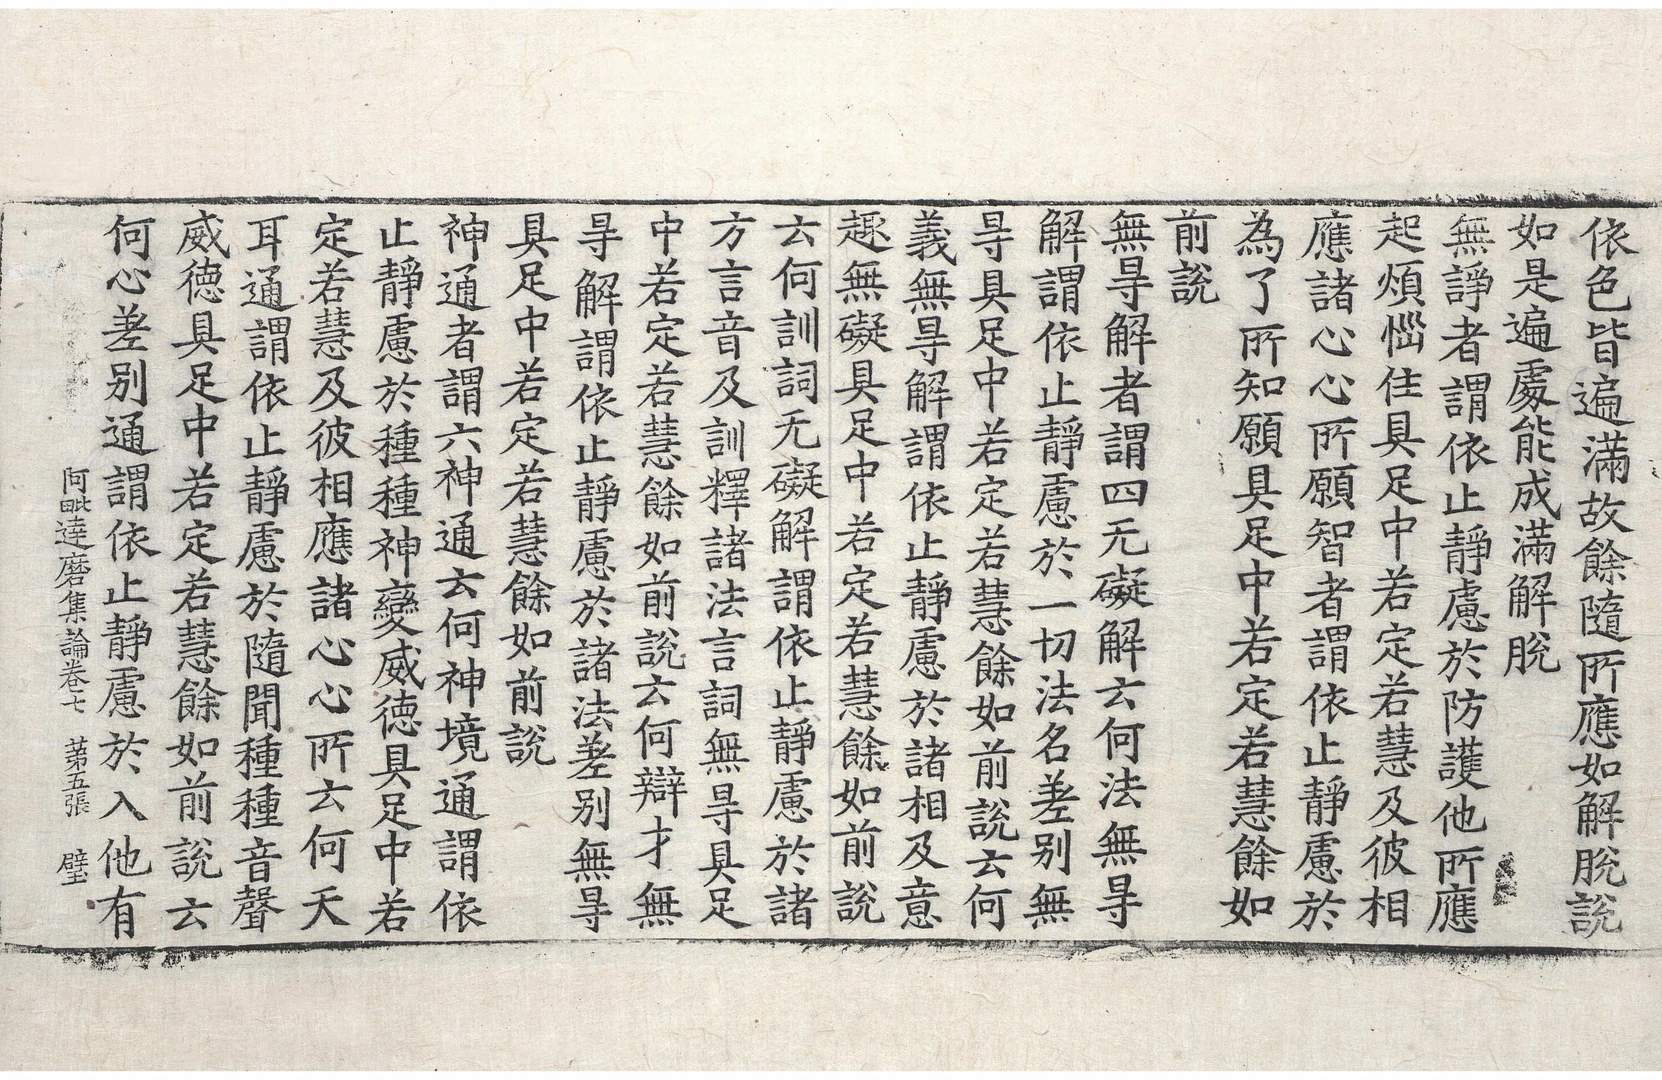 依色皆遍滿故餘隨所應如解脫說
如是遍處能成滿解脫
無諍者謂依止靜慮於防護他所應
起煩惱住具足中若定若慧及彼相
應諸心心所願智者謂依止靜慮於
為了所知願具足中若定若慧餘如
前說
無㝵解者謂四无礙解云何法無㝵
解謂依止靜慮於一切法名差別無
㝵具足中若定若慧餘如前說云何
義無㝵解謂依止靜慮於諸相及意
趣無礙具足中若定若慧餘如前說
云何訓詞无礙解謂依止靜慮於諸
方言音及訓釋諸法言詞無㝵具足
中若定若慧餘如前說云何辯才無
㝵解謂依止靜慮於諸法差別無㝵
具足中若定若慧餘如前說
神通者謂六神通云何神境通謂依
止靜慮於種種神變威德具足中若
定若慧及彼相應諸心心所云何天
耳通謂依止靜慮於隨聞種種音聲
威德具足中若定若慧餘如前說云
何心差別通謂依止靜慮於入他有
阿毗達磨集論卷七 苐五張 璧